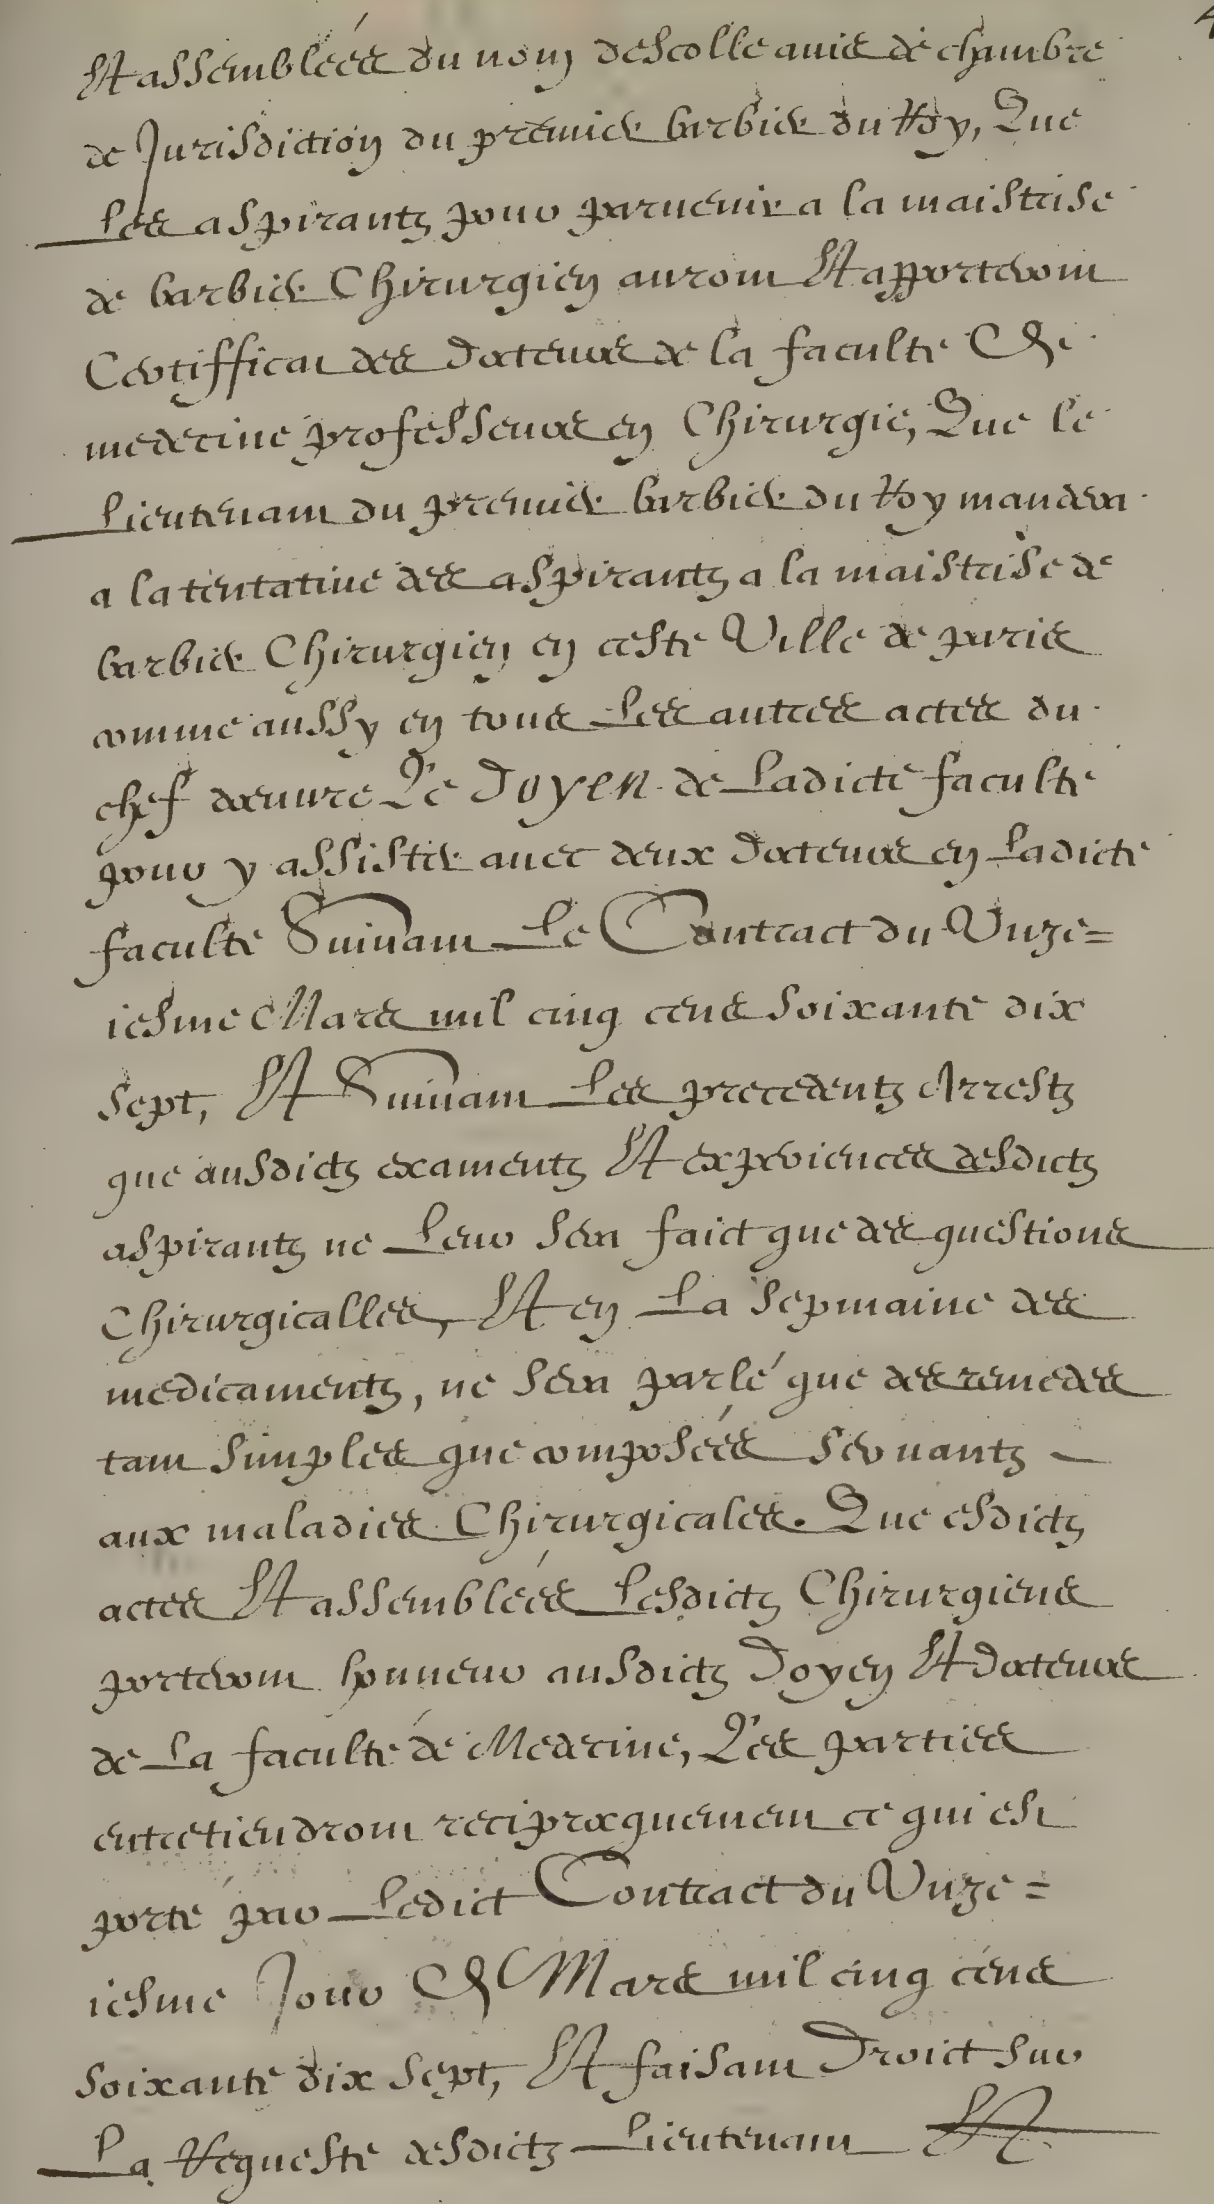 Et assemblées du nom descolle ains de chambre
de Jurisdiction du premier barbier du Roy, Que
Les aspirantz pour parvenir a la maistrise
de barbier Chirurgien auront Et apporteront
Certifficat des docteurs de la faculté de
medecine professeurs en Chirurgie, Que le
Lieutenant du premier barbier du Roy mandera
a la tentative des aspirantz a la maistrise de
barbier Chirurgien en ceste Ville de paris
comme aussy en tous Les autres actes du
chef dœuvre Le Doyen de Ladicte faculté
pour y assister avec deux docteurs en Ladicte
faculté Suivant Le Contract du Unze=
iesme Mars mil cinq cens soixante dix
sept, Et Suivant Les precedentz Arrestz
que ausdictz examentz Et experiences desdictz
aspirantz ne Leur sera faict que des questions
Chirurgicalles, Et en La sepmaine des
medicamentz, ne sera parlé que des remedes
tant simples que composées servantz
aux maladies Chirurgicales. Que esdictz
actes Et assemblées Lesdictz Chirurgiens
porteront honneur ausdictz Doyen Et docteurs
de La faculté de Medecine, Les parties
entretiendront reciproquement ce qui est
porté par Ledict Contract du Unze=
iesme Jour de Mars mil cinq cens
soixante dix sept, Et faisant Droict sur
La Requeste desdictz Lieutenant Et